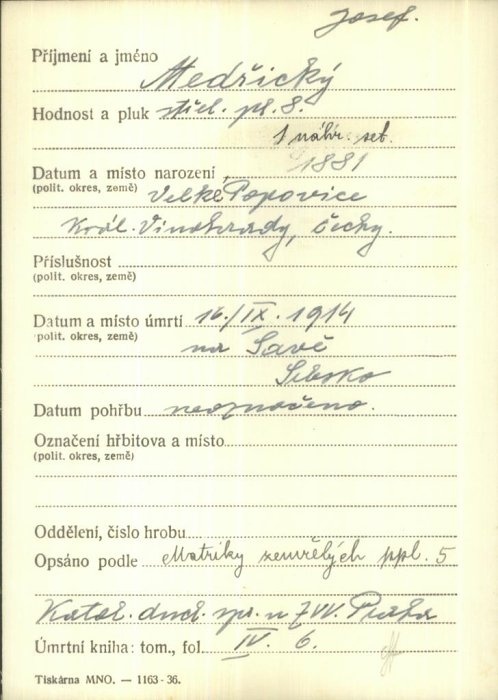 Josef.
Příjmení a jméno Medřický
Hodnost a pluk střel. pl. 8.
1 náhr. set.
Datum a místo narození 1881
(polit. okres, země) Velké Popovice
Král. Vinohrady, Čechy.
Příslušnost
(polit. okres, země)
Datum a místo úmrtí 16./IX. 1914
polit. okres, země) na Savě
Srbsko
Datum pohřbu neoznačeno.
Označení hřbitova a místo
(polit. okres, země)
Oddělení, číslo hrobu
Opsáno podle Matriky zemřelých ppl. 5
Katol. duch. spr. u ZVV. Praha
Úmrtní kniha: tom., fol. IV. 6.
Tiskárna MNO. — 1163-36.